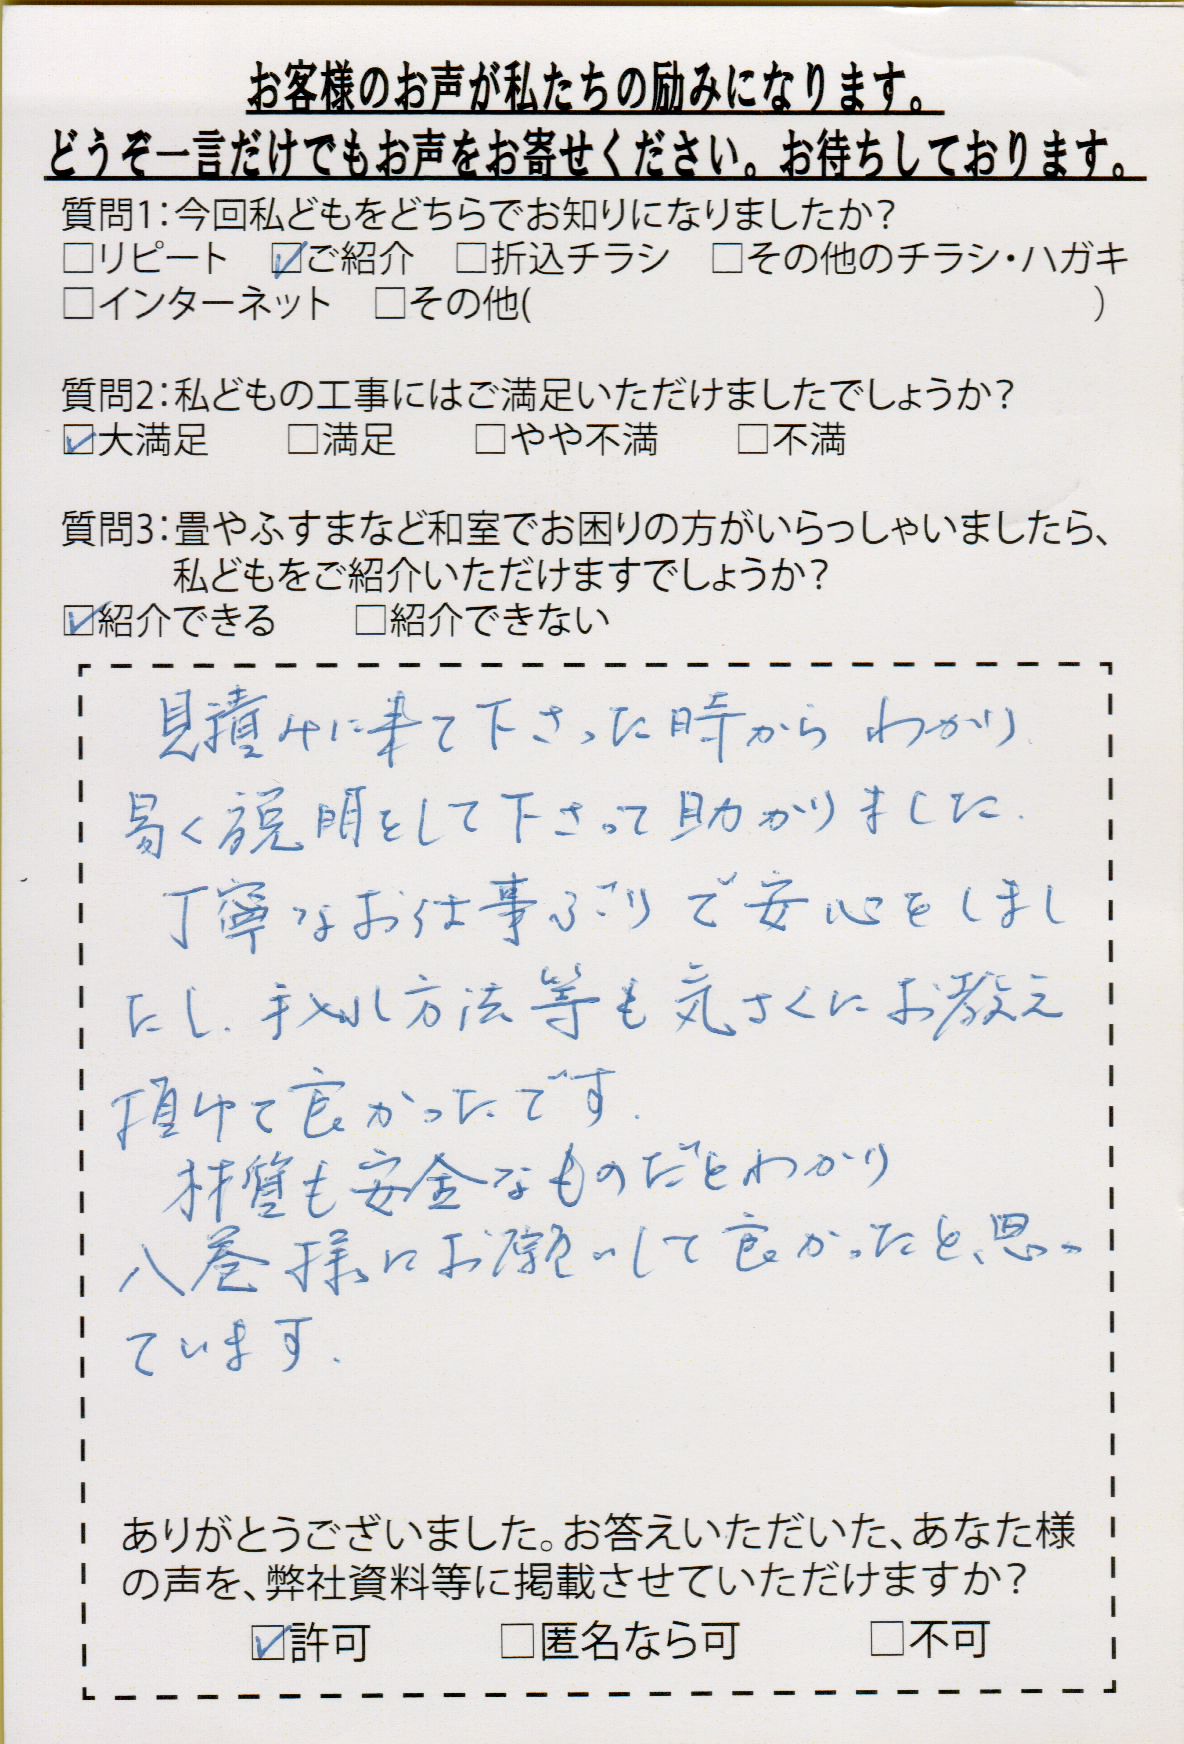 お客様のお声が私たちの励みになります。
どうぞ一言だけでもお声をお寄せください。お待ちしております。
質問1：今回私どもをどちらでお知りになりましたか？
□リピート ☑ご紹介 □折込チラシ □その他のチラシ・ハガキ
□インターネット □その他( )
質問2：私どもの工事にはご満足いただけましたでしょうか？
☑大満足 □満足 □やや不満 □不満
質問3：畳やふすまなど和室でお困りの方がいらっしゃいましたら、
私どもをご紹介いただけますでしょうか？
☑紹介できる □紹介できない
見積みに来て下さった時からわかり
易く説明をして下さって助かりました.
丁寧なお仕事ぶりで安心をしまし
たし、手入れ方法等も気さくにお教え
頂けて良かったです.
材質も安全なものだとわかり
八巻様にお願いして良かったと思っ
ています.
ありがとうございました。お答えいただいた、あなた様
の声を、弊社資料等に掲載させていただけますか？
☑許可 □匿名なら可 □不可